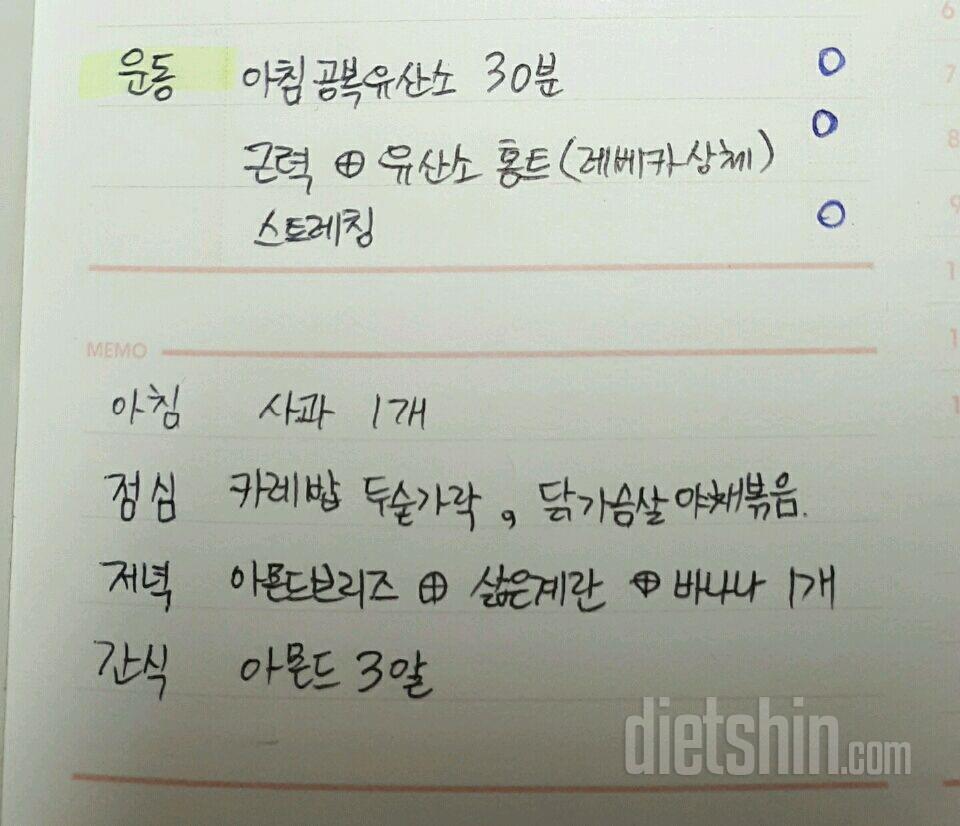 운동 아침 공복유산소 30분 O
근력 ⊕ 유산소 홈트(레베카상체) O
스트레칭 O
MEMO
아침 사과 1개
점심 카레밥 두숟가락, 닭가슴살야채볶음.
저녁 아몬드브리즈 ⊕ 삶은계란 ⊕ 바나나 1개
간식 아몬드 3알
dietshin.com
6
7
8
9
1
1
1